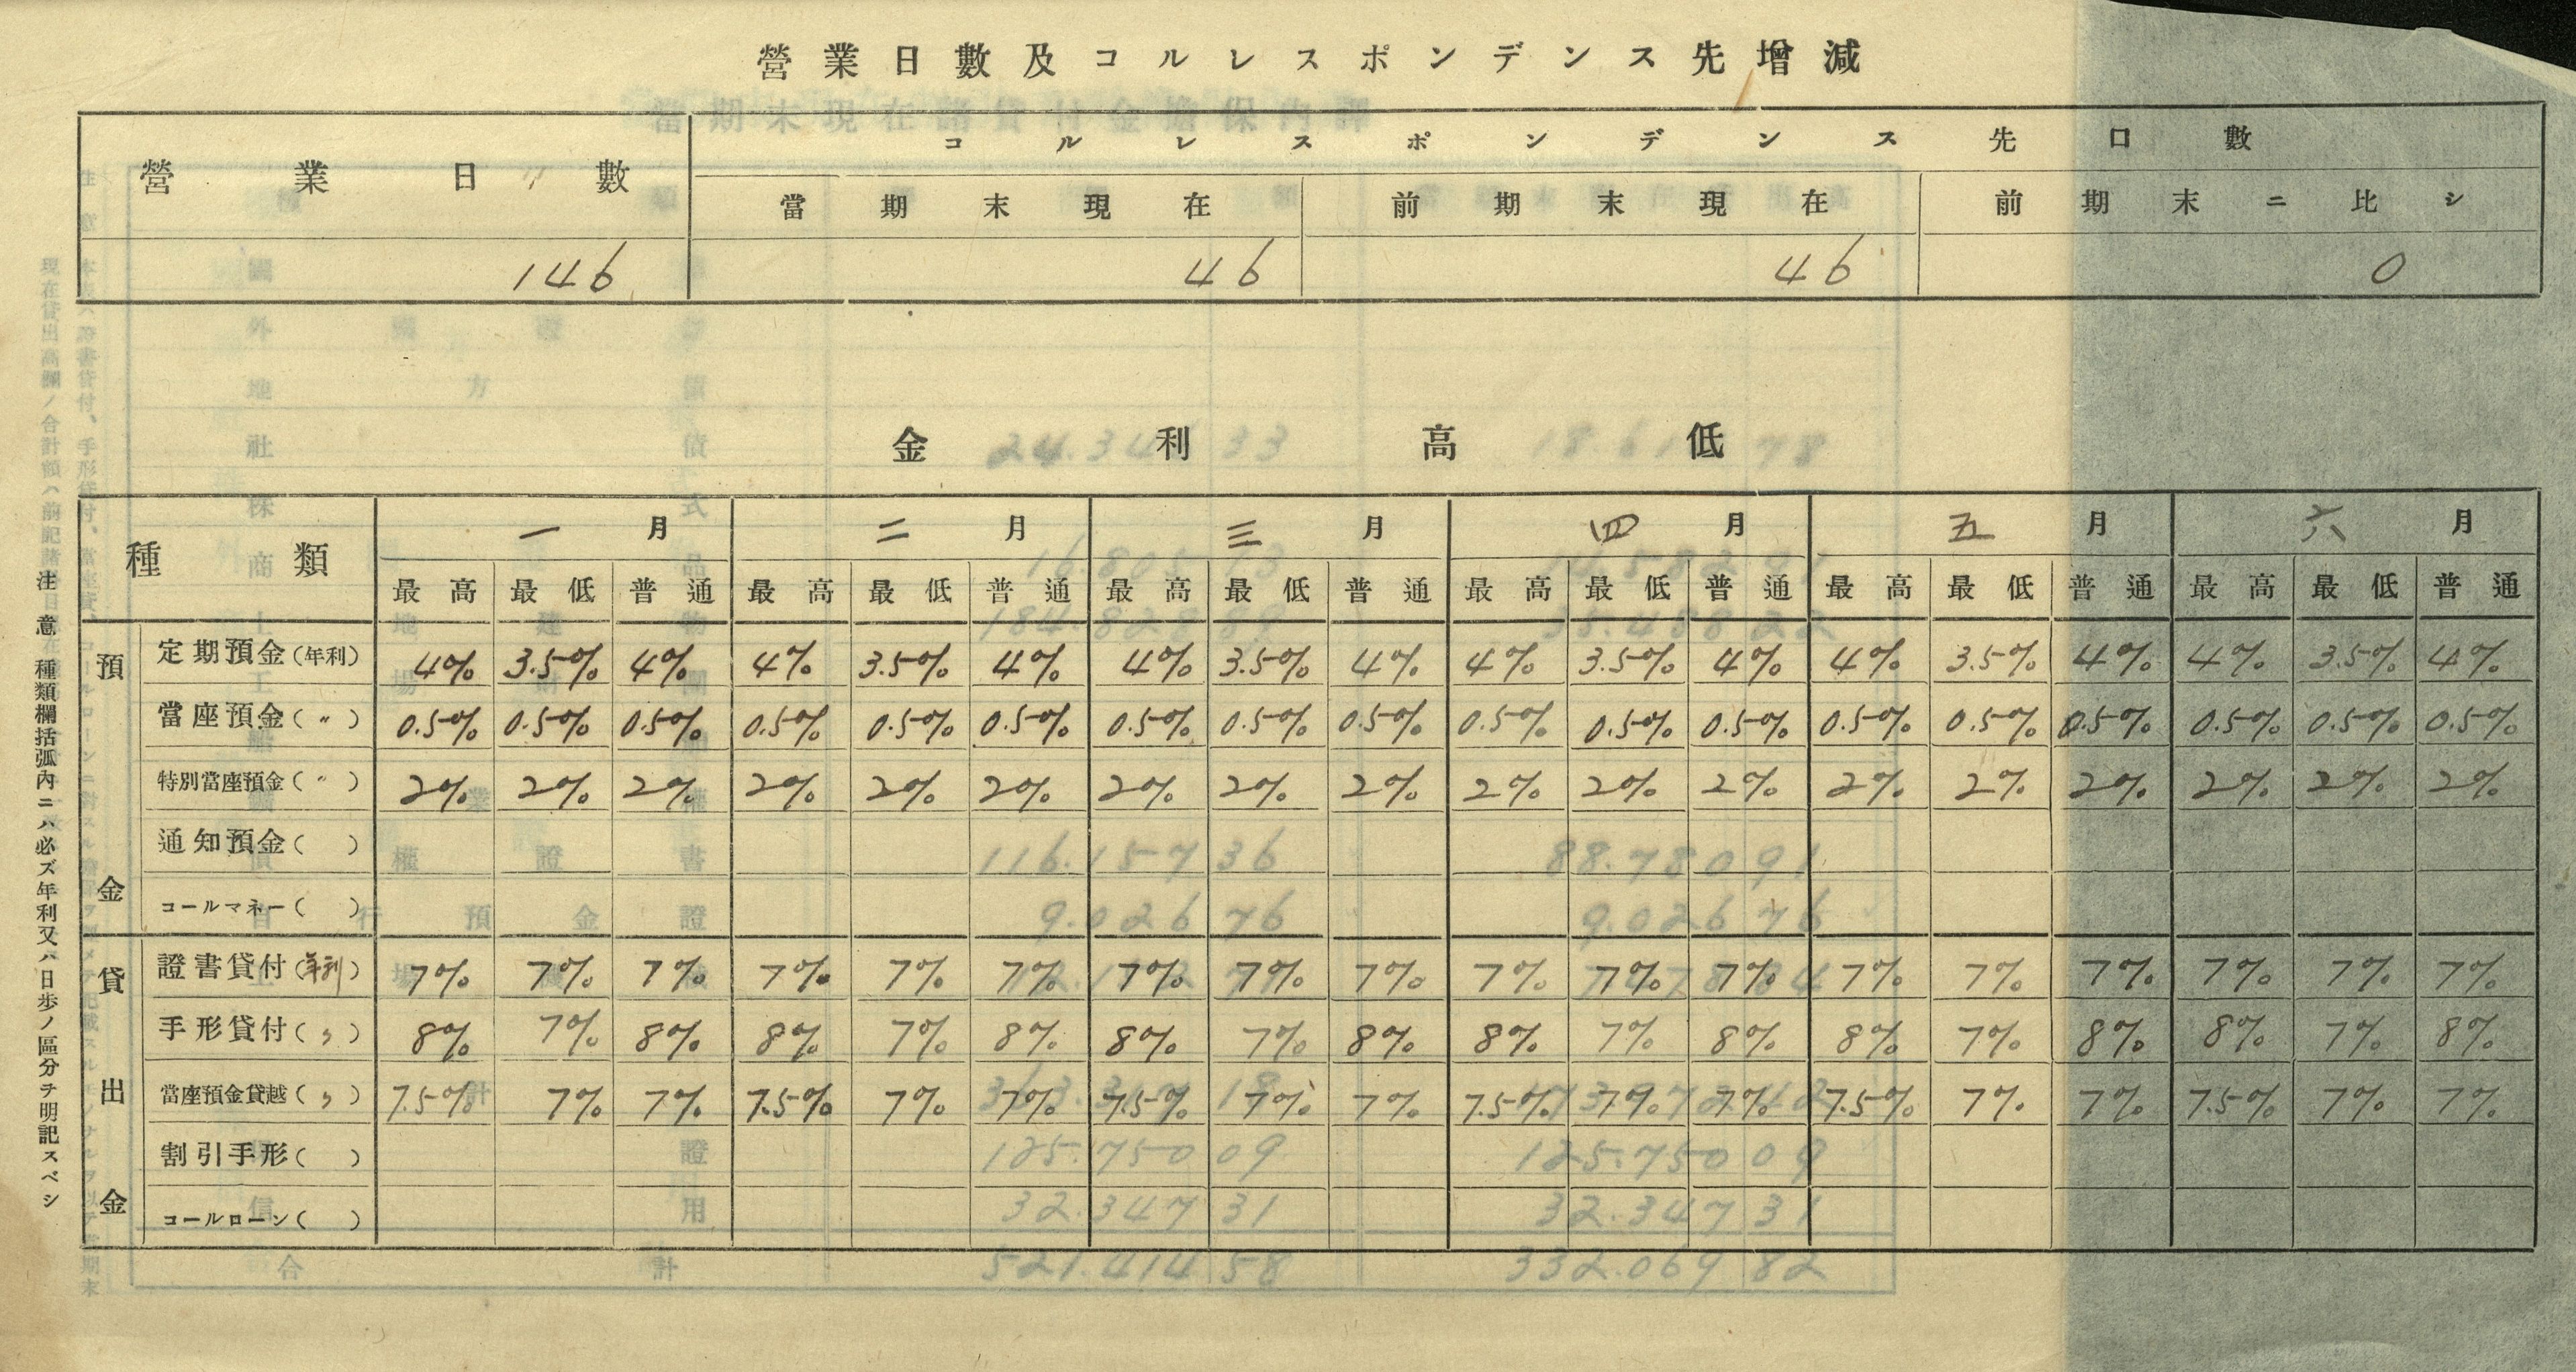 營業日數及コルレスポンデンス先增減
營業日數 コルレスポンデンス先口數
當期末現在 前期末現在 前期末ニ比シ
146 46 46 0
金利高低
種類 一月 二月 三月 四月 五月 六月
最高 最低 普通 最高 最低 普通 最高 最低 普通 最高 最低 普通 最高 最低 普通 最高 最低 普通
預金
定期預金(年利) 4% 3.5% 4% 4% 3.5% 4% 4% 3.5% 4% 4% 3.5% 4% 4% 3.5% 4% 4% 3.5% 4%
當座預金(〃) 0.5% 0.5% 0.5% 0.5% 0.5% 0.5% 0.5% 0.5% 0.5% 0.5% 0.5% 0.5% 0.5% 0.5% 0.5% 0.5% 0.5% 0.5%
特別當座預金(〃) 2% 2% 2% 2% 2% 2% 2% 2% 2% 2% 2% 2% 2% 2% 2% 2% 2% 2%
通知預金( )
コールマネー( )
貸出金
證書貸付(年利) 7% 7% 7% 7% 7% 7% 7% 7% 7% 7% 7% 7% 7% 7% 7% 7% 7% 7%
手形貸付(〃) 8% 7% 8% 8% 7% 8% 8% 7% 8% 8% 7% 8% 8% 7% 8% 8% 7% 8%
當座預金貸越(〃) 7.5% 7% 7% 7.5% 7% 7% 7.5% 7% 7% 7.5% 7% 7% 7.5% 7% 7% 7.5% 7% 7%
割引手形( )
コールローン( )
注意 種類欄括弧內ニハ必ズ年利又ハ日歩ノ區分ヲ明記スベシ